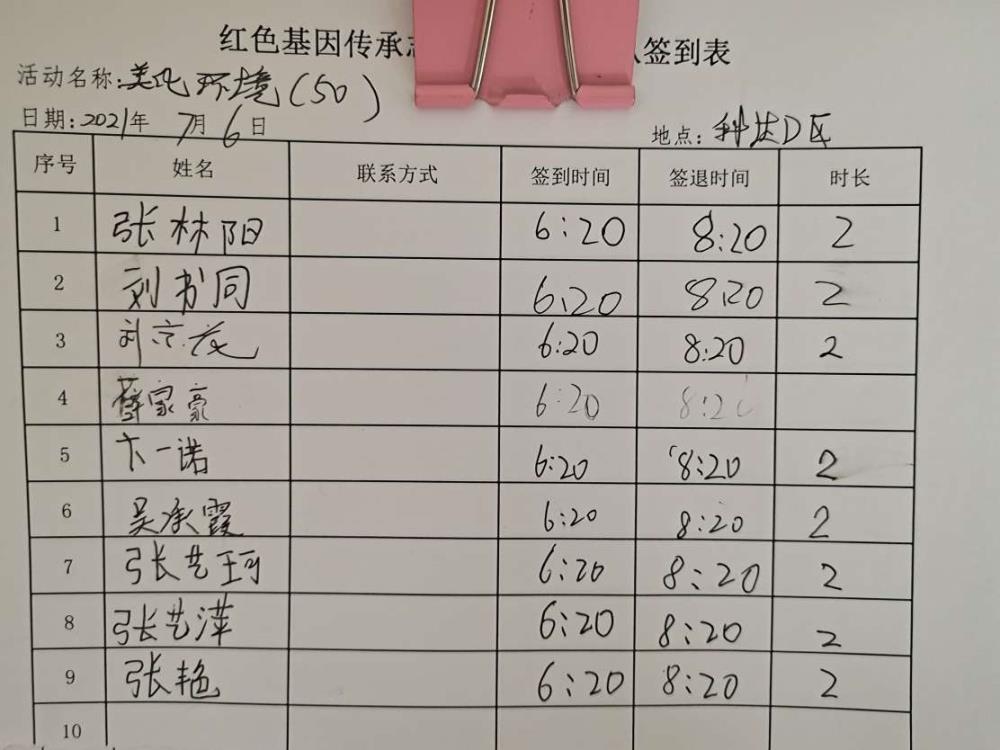 红色基因传承志 签到表
活动名称:美化环境(50)
日期:2021年 7月6日 地点:科达D区
序号 姓名 联系方式 签到时间 签退时间 时长
1 张林阳 6:20 8:20 2
2 刘书同 6:20 8:20 2
3 刘京 6:20 8:20 2
4 薛家豪 6:20 8:20
5 卞一诺 6:20 8:20 2
6 吴承霞 6:20 8:20 2
7 张艺珂 6:20 8:20 2
8 张艺萍 6:20 8:20 2
9 张艳 6:20 8:20 2
10